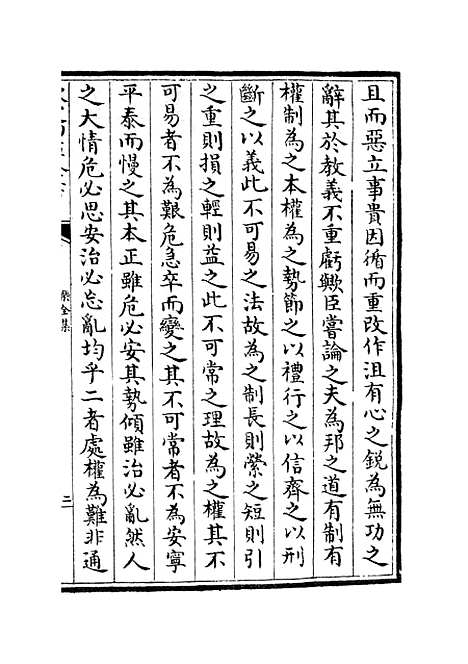 且而惡立事貴因循而重改作沮有心之鋭為無功之
辭其於教義不重虧歟臣嘗論之夫為邦之道有制有
權制為之本權為之勢節之以禮行之以信齊之以刑
斷之以義此不可易之法故為之制長則縈之短則引
之重則損之輕則益之此不可常之理故為之權其不
可易者不為艱危急卒而變之其不可常者不為安寧
平泰而慢之其本正雖危必安其勢傾雖治必亂然人
之大情危必思安治必忘亂均乎二者處權為難非通
樂全集
二